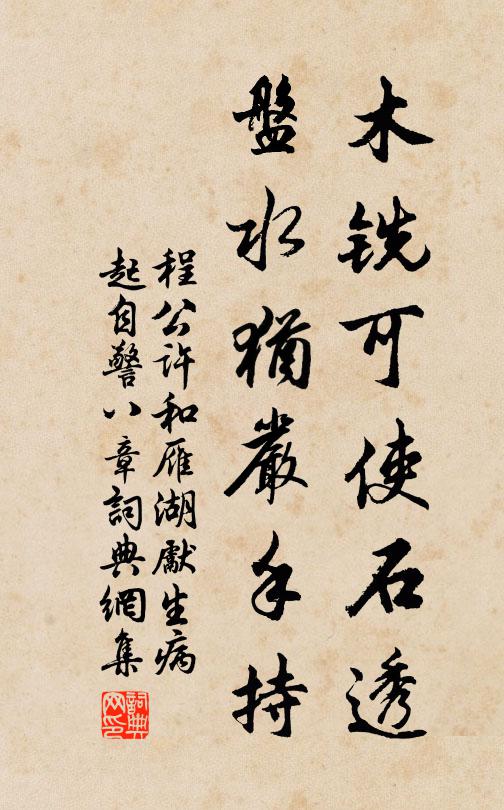 木铣可使石透
盤水猶嚴手持
程公許和雁湖獻生病
起自警八章詞典網集
詞典
网印